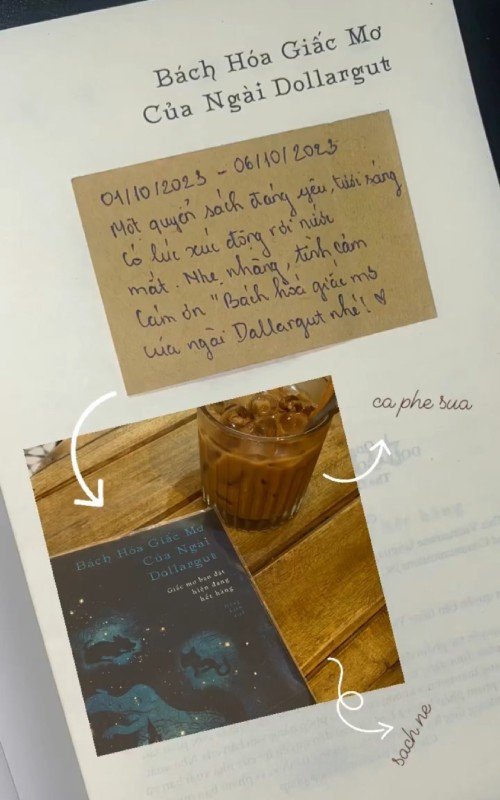 Bách Hóa Giấc Mơ
Của Ngài Dollargut
01/10/2023 - 06/10/2023
Một quyển sách đáng yêu, tươi sáng
có lúc xúc động rơi nước
mắt. Nhẹ nhàng, tình cảm
Cảm ơn "Bách hoá giấc mơ
của ngài Dallargut nhé! ♡
ca phe sua
Bách Hóa Giấc Mơ
Của Ngài
Dollargut
Giấc mơ bạn đặt
hiện đang
hết hàng
sach ne